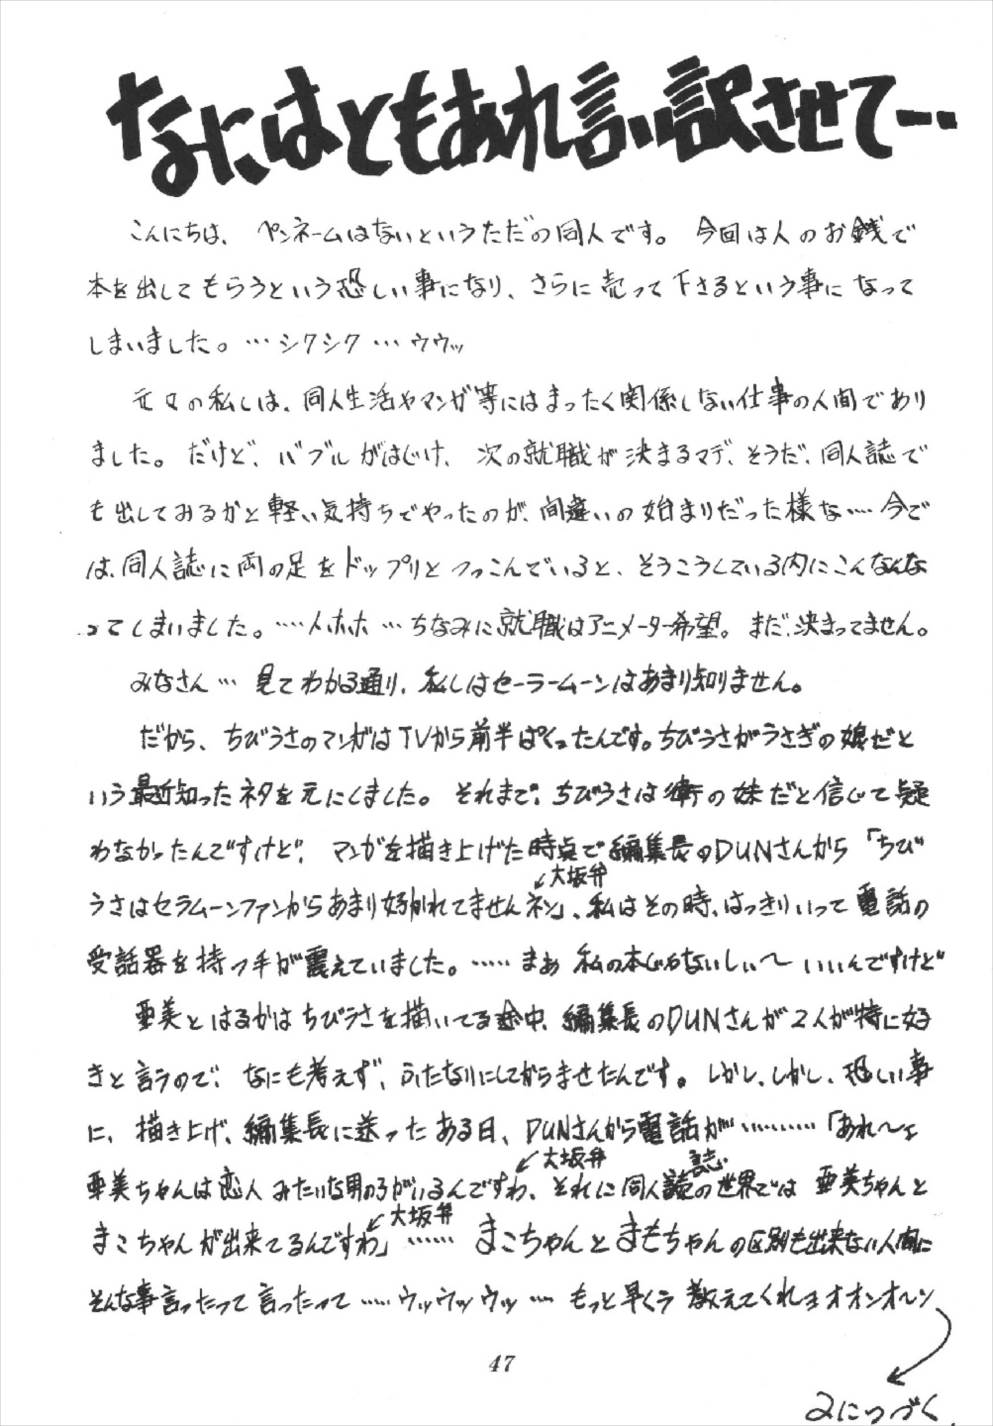 なにはともあれ言い訳させて…
こんにちは、ペンネームはないというただの同人です。今回は人のお銭で
本を出してもらうという恐しい事になり、さらに売って下さるという事になって
しまいました。…シクシク…ウウッ
元々の私しは、同人生活やマンガ等にはまったく関係しない仕事の人間であり
ました。だけど、バブルがはじけ、次の就職が決まるマデ、そうだ、同人誌で
も出してみるかと軽い気持ちでやったのが、間違いの始まりだった様な…今で
は、同人誌に両の足をドップリとつっこんでいると、そうこうしている内にこんなんな
ってしまいました。……ホホ…ちなみに就職はアニメーター希望。まだ、決まってません。
みなさん…見てわかる通り、私しはセーラームーンはあまり知りません。
だから、ちびうさのマンガはTVから前半ぱくったんです。ちびうさがうさぎの娘だと
いう最近知ったネタを元にしました。それまで、ちびうさは衛の妹だと信じて疑
わなかったんですけど、マンガを描き上げた時点で編集長のDUNさんから「ちび
大坂弁
うさはセラムーンファンからあまり好かれてませんネン」、私はその時、はっきりいって電話の
受話器を持つ手が震えていました。……まぁ私の本じゃないしぃ〜いいんですけど
亜美とはるかはちびうさを描いてる途中、編集長のDUNさんが2人が特に好
きと言うので、なにも考えず、ふたなりにしてからませたんです。しかし、しかし、恐しい事
に、描き上げ、編集長に送ったある日、DUNさんから電話が…………「あれ〜ェ
大坂弁 誌
亜美ちゃんは恋人みたいな男の子がいるんですわ、それに同人誌の世界では亜美ちゃんと
大坂弁
まこちゃんが出来てるんですわ」……まこちゃんとまもちゃんの区別も出来ない人間に
そんな事言ったって言ったって……ウッウッウッ…もっと早くう教えてくれヨオオンオーン
47
2につづく